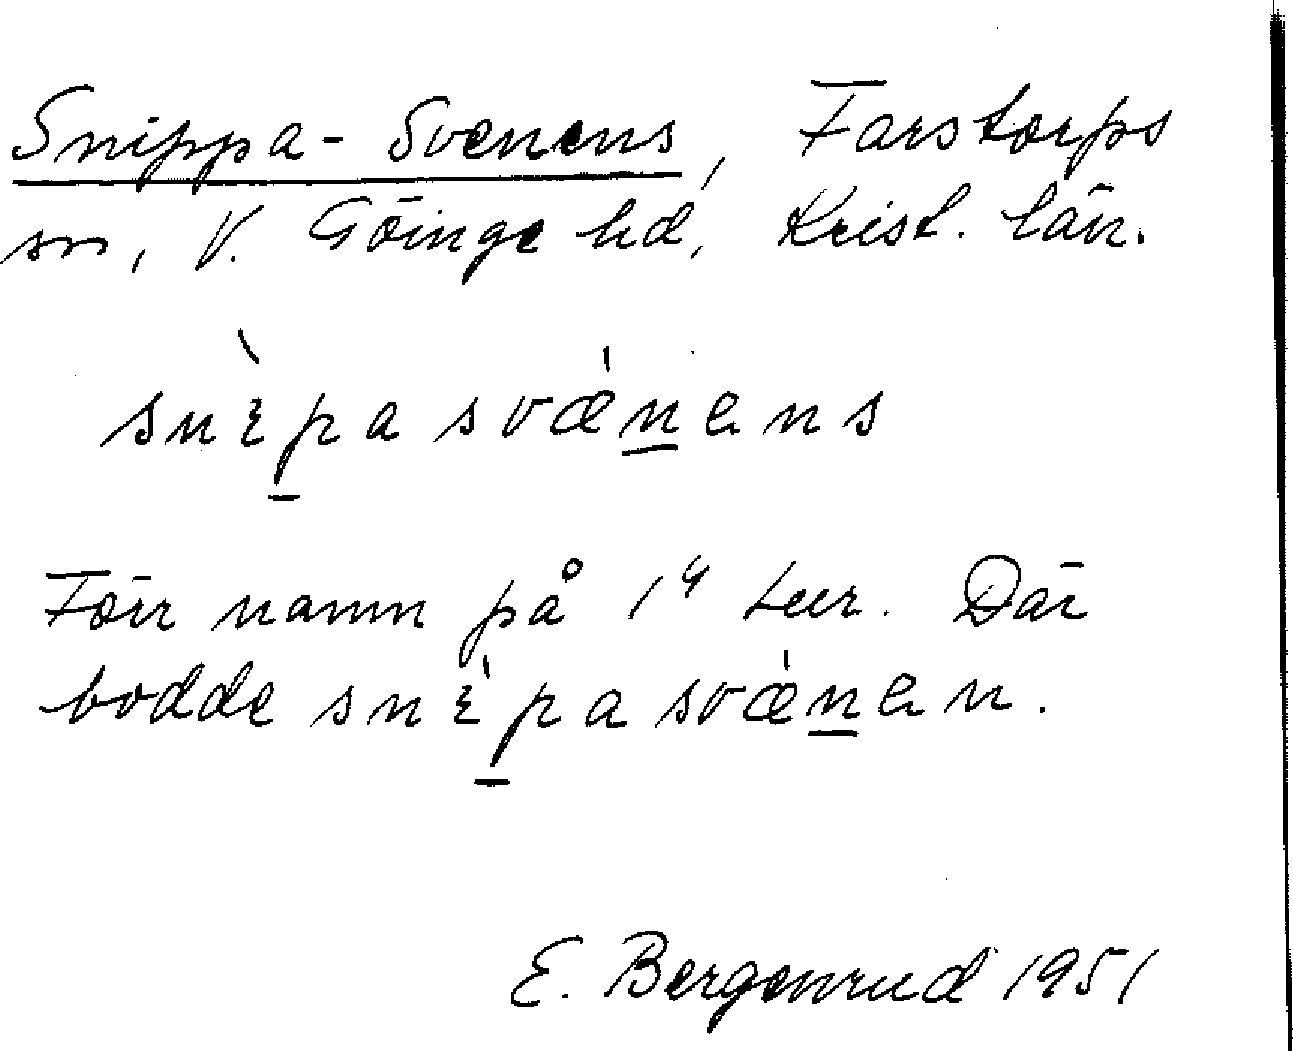 Snippa-Svenens, Farstorps
sn, V. Göinge hd, Krist. län.
snèpasvǽnens
Förr namn på 14 tur. Där
bodde snèpasvǽnen.
E. Bergenrud 1951